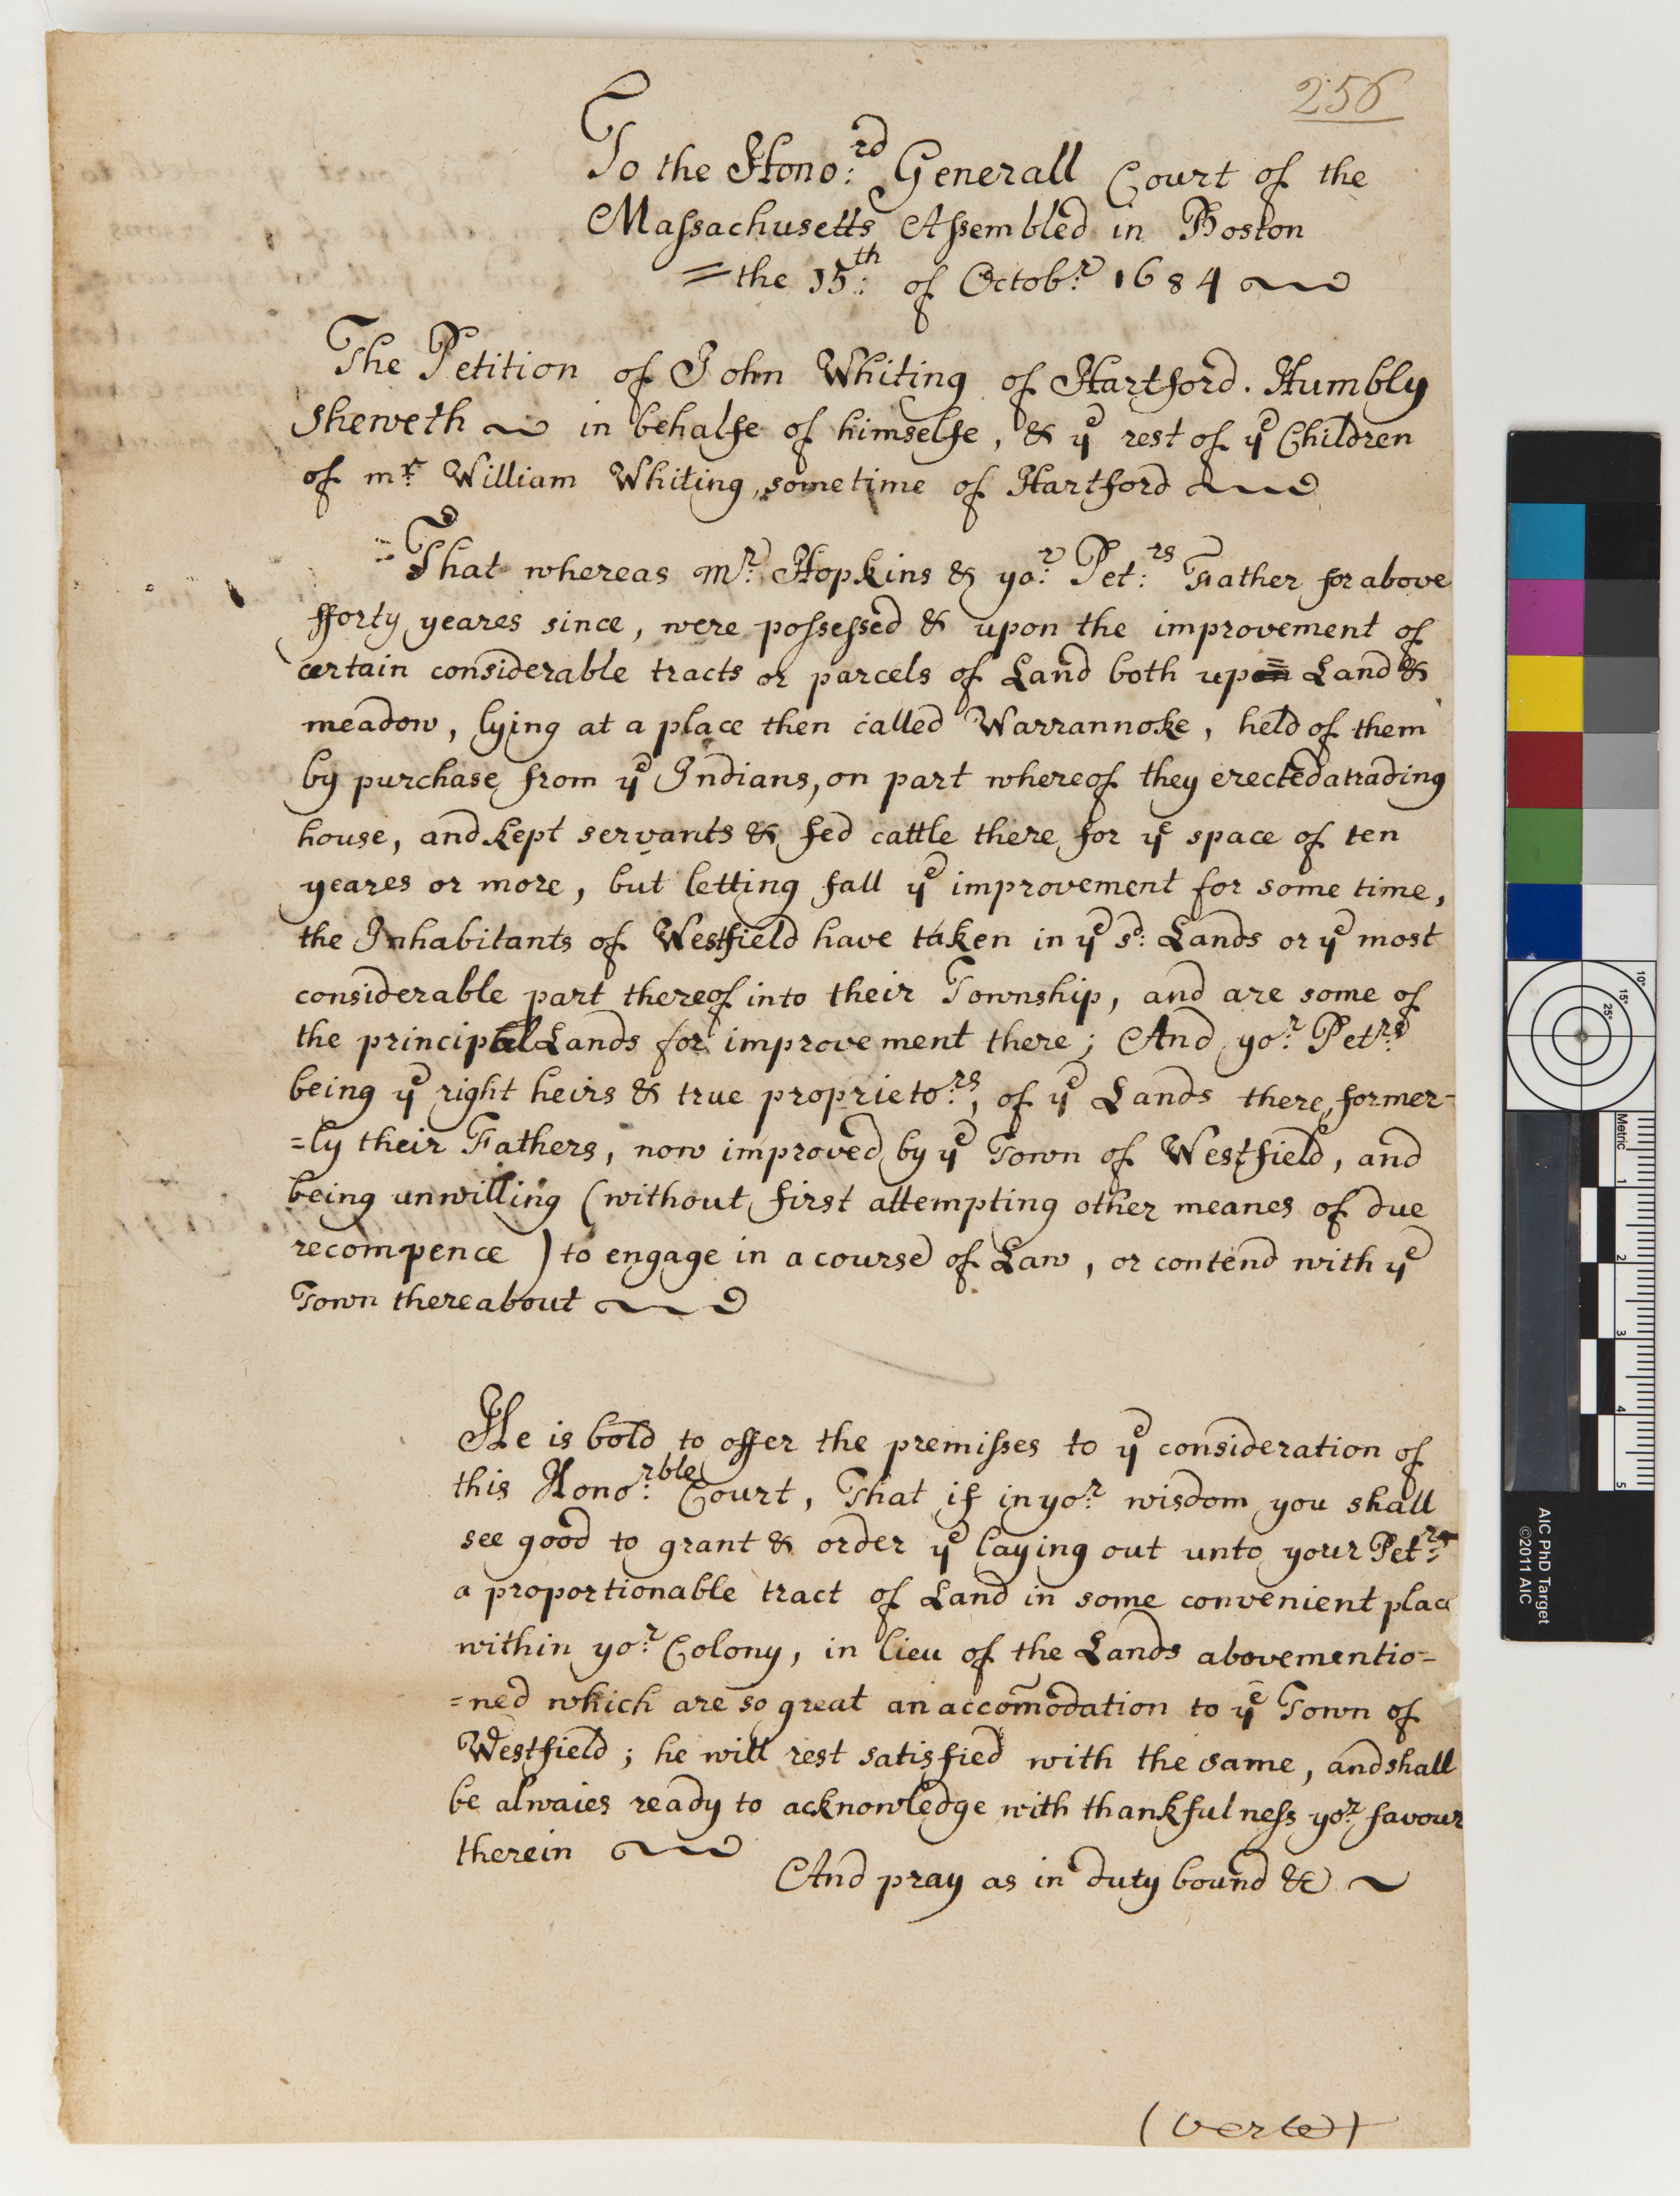 256
To the Hono:rd Generall Court of the
Massachusetts Assembled in Boston
= the 15:th of Octob:r 1684
The Petition of John Whiting of Hartford. Humbly
sheweth in behalfe of himselfe, & ye rest of ye Children
of mr William Whiting, sometime of Hartford
That whereas Mr: Hopkins & yo:r Pet:rs Father for above
fforty yeares since, were possessed & upon the improvement of
certain considerable tracts or parcels of Land both up= Land &
meadow, lying at a place then called Warrannoke, held of them
by purchase from ye Indians, on part whereof they erected a trading
house, and kept servants & fed cattle there for ye space of ten
yeares or more, but letting fall ye improvement for some time,
the Inhabitants of Westfield have taken in ye sd: Lands or ye most
considerable part thereof into their Township, and are some of
the principal Lands for improvement there; And yo:r Pet:rs
being ye right heirs & true proprieto:rs, of ye Lands there, former-
=ly their Fathers, now improved by ye Town of Westfield, and
being unwilling (without first attempting other meanes of due
recompence) to engage in a course of Law, or contend with ye
Town thereabout
He is bold to offer the premisses to ye consideration of
this Hono:rble Court, That if in yo:r wisdom you shall
see good to grant & order ye laying out unto your Pet:rs
a proportionable tract of Land in some convenient place
within yo:r Colony, in lieu of the Lands abovementio=
=ned which are so great an accom̃odation to ye Town of
Westfield; he will rest satisfied with the same, and shall
be alwaies ready to acknowledge with thankfulness yo:r favour
therein
And pray as in duty bound &c
(verte)
Metric
1
2
3
4
5
10°
15°
25°
AIC PhD Target
©2011 AIC